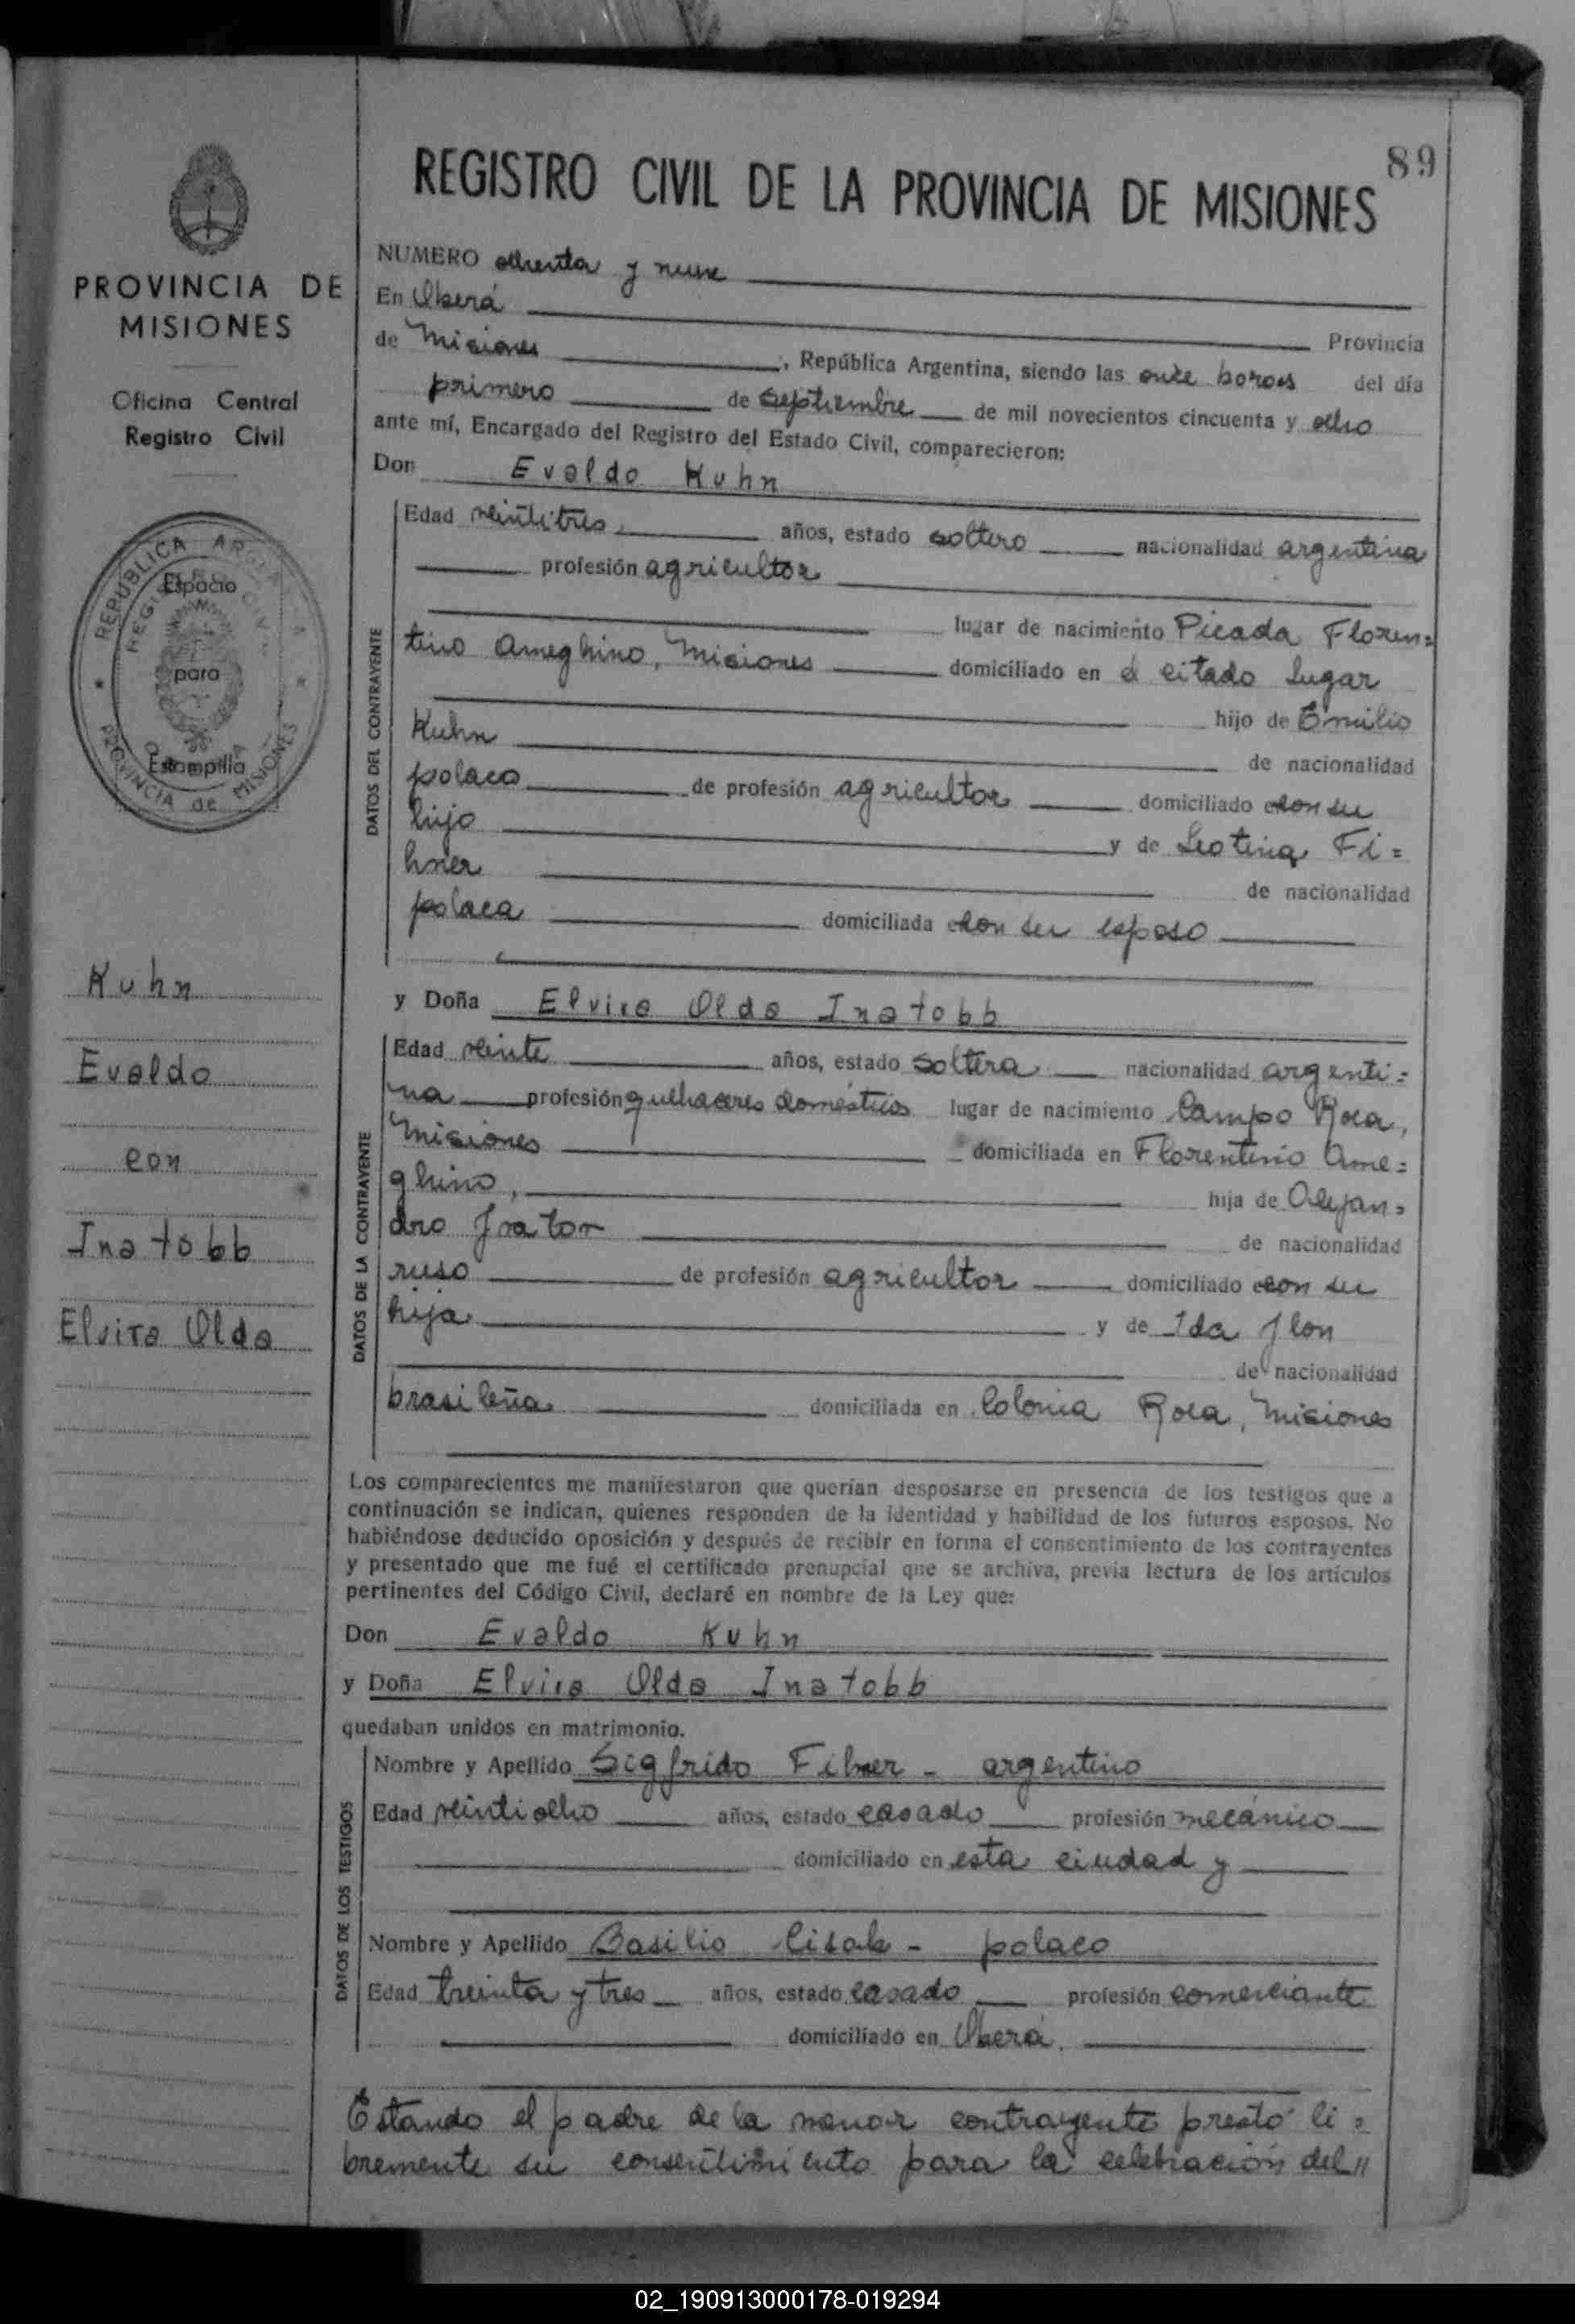 89
REGISTRO CIVIL DE LA PROVINCIA DE MISIONES
PROVINCIA DE
MISIONES
Oficina Central
Registro Civil
REPÚBLICA ARGENTINA
REGISTRO CIVIL
Espacio
para
Estampilla
PROVINCIA de MISIONES
Kuhn
Evaldo
con
Inatobb
Elvira Olda
NUMERO ochenta y nueve
En Oberá Provincia
de Misiones, República Argentina, siendo las once horas del día
primero de septiembre de mil novecientos cincuenta y ocho
ante mí, Encargado del Registro del Estado Civil, comparecieron:
Don Evaldo Kuhn
DATOS DEL CONTRAYENTE
Edad veintitres años, estado soltero nacionalidad argentina
profesión agricultor
lugar de nacimiento Picada Floren=
tino Ameghino, Misiones domiciliado en el citado lugar
hijo de Emilio
Kuhn de nacionalidad
polaco de profesión agricultor domiciliado con su
hijo y de Leotina Fi=
hner de nacionalidad
polaca domiciliada con su esposo
y Doña Elvira Olda Inatobb
DATOS DE LA CONTRAYENTE
Edad veinte años, estado soltera nacionalidad argenti=
na profesión quehaceres domésticos lugar de nacimiento Campo Roca,
Misiones domiciliada en Florentino Ame=
ghino, hija de Alejan=
dro de nacionalidad
ruso de profesión agricultor domiciliado con su
hija y de Ida
de nacionalidad
brasileña domiciliada en Colonia Roca, Misiones
Los comparecientes me manifestaron que querían desposarse en presencia de los testigos que a
continuación se indican, quienes responden de la identidad y habilidad de los futuros esposos. No
habiéndose deducido oposición y después de recibir en forma el consentimiento de los contrayentes
y presentado que me fué el certificado prenupcial que se archiva, previa lectura de los artículos
pertinentes del Código Civil, declaré en nombre de la Ley que:
Don Evaldo Kuhn
y Doña Elvira Olda Inatobb
quedaban unidos en matrimonio.
DATOS DE LOS TESTIGOS
Nombre y Apellido Sigfrido Fihner - argentino
Edad veintiocho años, estado casado profesión mecánico
domiciliado en esta ciudad y
Nombre y Apellido Basilio Cisak - polaco
Edad treinta y tres años, estado casado profesión comerciante
domiciliado en Oberá.
Estando el padre de la menor contrayente prestó li=
bremente su consentimiento para la celebración del //
02_190913000178-019294